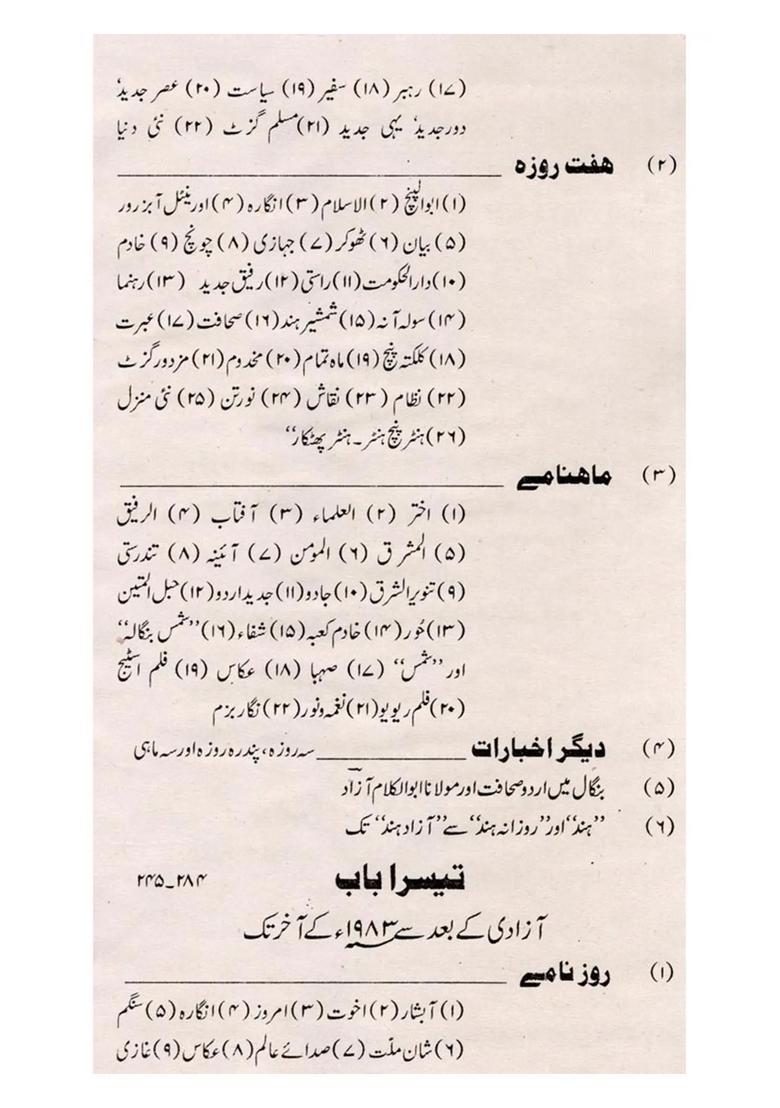 (۱۷) رہبر (۱۸) سفیر (۱۹) سیاست (۲۰) عصر جدید،
دور جدید، یہی جدید (۲۱) مسلم گزٹ (۲۲) نئی دنیا
(۲) ہفت روزہ
(۱) ابوالپنچ (۲) الاسلام (۳) انگارہ (۴) اورینٹل آبزرور
(۵) بیان (۶) ٹھوکر (۷) جہازی (۸) چونچ (۹) خادم
(۱۰) دارالحکومت (۱۱) راستی (۱۲) رفیق جدید (۱۳) رہنما
(۱۴) سولہ آنہ (۱۵) شمشیر ہند (۱۶) صحافت (۱۷) عبرت
(۱۸) کلکتہ پنچ (۱۹) ماہ تمام (۲۰) مخدوم (۲۱) مزدور گزٹ
(۲۲) نظام (۲۳) نقاش (۲۴) نورتن (۲۵) نئی منزل
(۲۶) ہنٹر پنچ ہنٹر۔ ہنٹر پھٹکار“
(۳) ماہنامے
(۱) اختر (۲) العلماء (۳) آفتاب (۴) الرفیق
(۵) المشرق (۶) المومن (۷) آئینہ (۸) تندرستی
(۹) تنویرالشرق (۱۰) جادو (۱۱) جدید اردو (۱۲) حبل المتین
(۱۳) حُور (۱۴) خادم کعبہ (۱۵) شفاء (۱۶) ”شمس بنگالہ“
اور ”شمس“ (۱۷) صہبا (۱۸) عکاس (۱۹) فلم اسٹیج
(۲۰) فلم ریویو (۲۱) نغمہ و نور (۲۲) نگار بزم
(۴) دیگر اخبارات سہ روزہ، پندرہ روزہ اور سہ ماہی
(۵) بنگال میں اردو صحافت اور مولانا ابوالکلام آزاد
(۶) ”ہند“ اور ”روزانہ ہند“ سے ”آزاد ہند“ تک
تیسرا باب ۲۴۵_۲۸۴
آزادی کے بعد سے ۱۹۸۳ء کے آخر تک
(۱) روزنامے
(۱) آبشار (۲) اخوت (۳) امروز (۴) انگارہ (۵) سنگم
(۶) شان ملّت (۷) صدائے عالم (۸) عکاس (۹) غازی